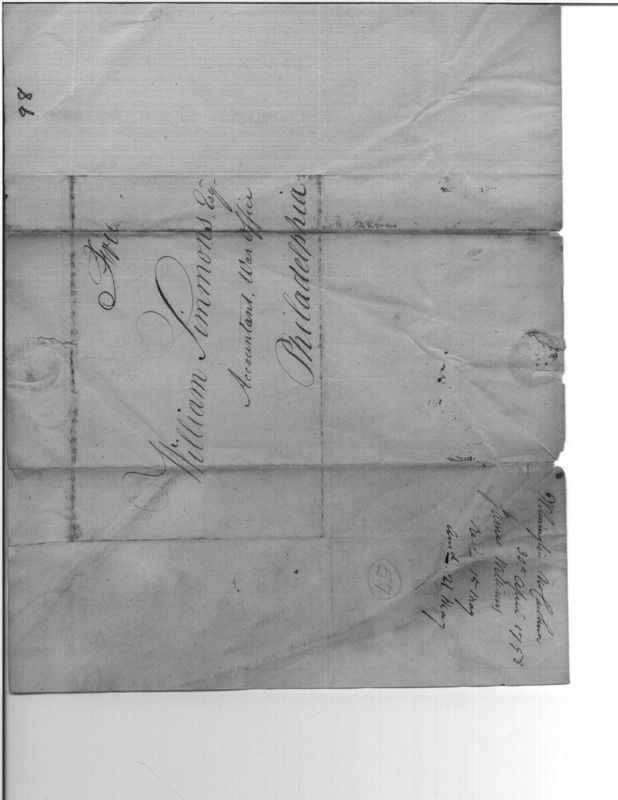 98
Free
William Simmons, Esqr
Accountant, War Office
Philadelphia
Wilmington N. Carolina
30th April 1798
James Williams
Recd 15 May
Ansd 21 May
57